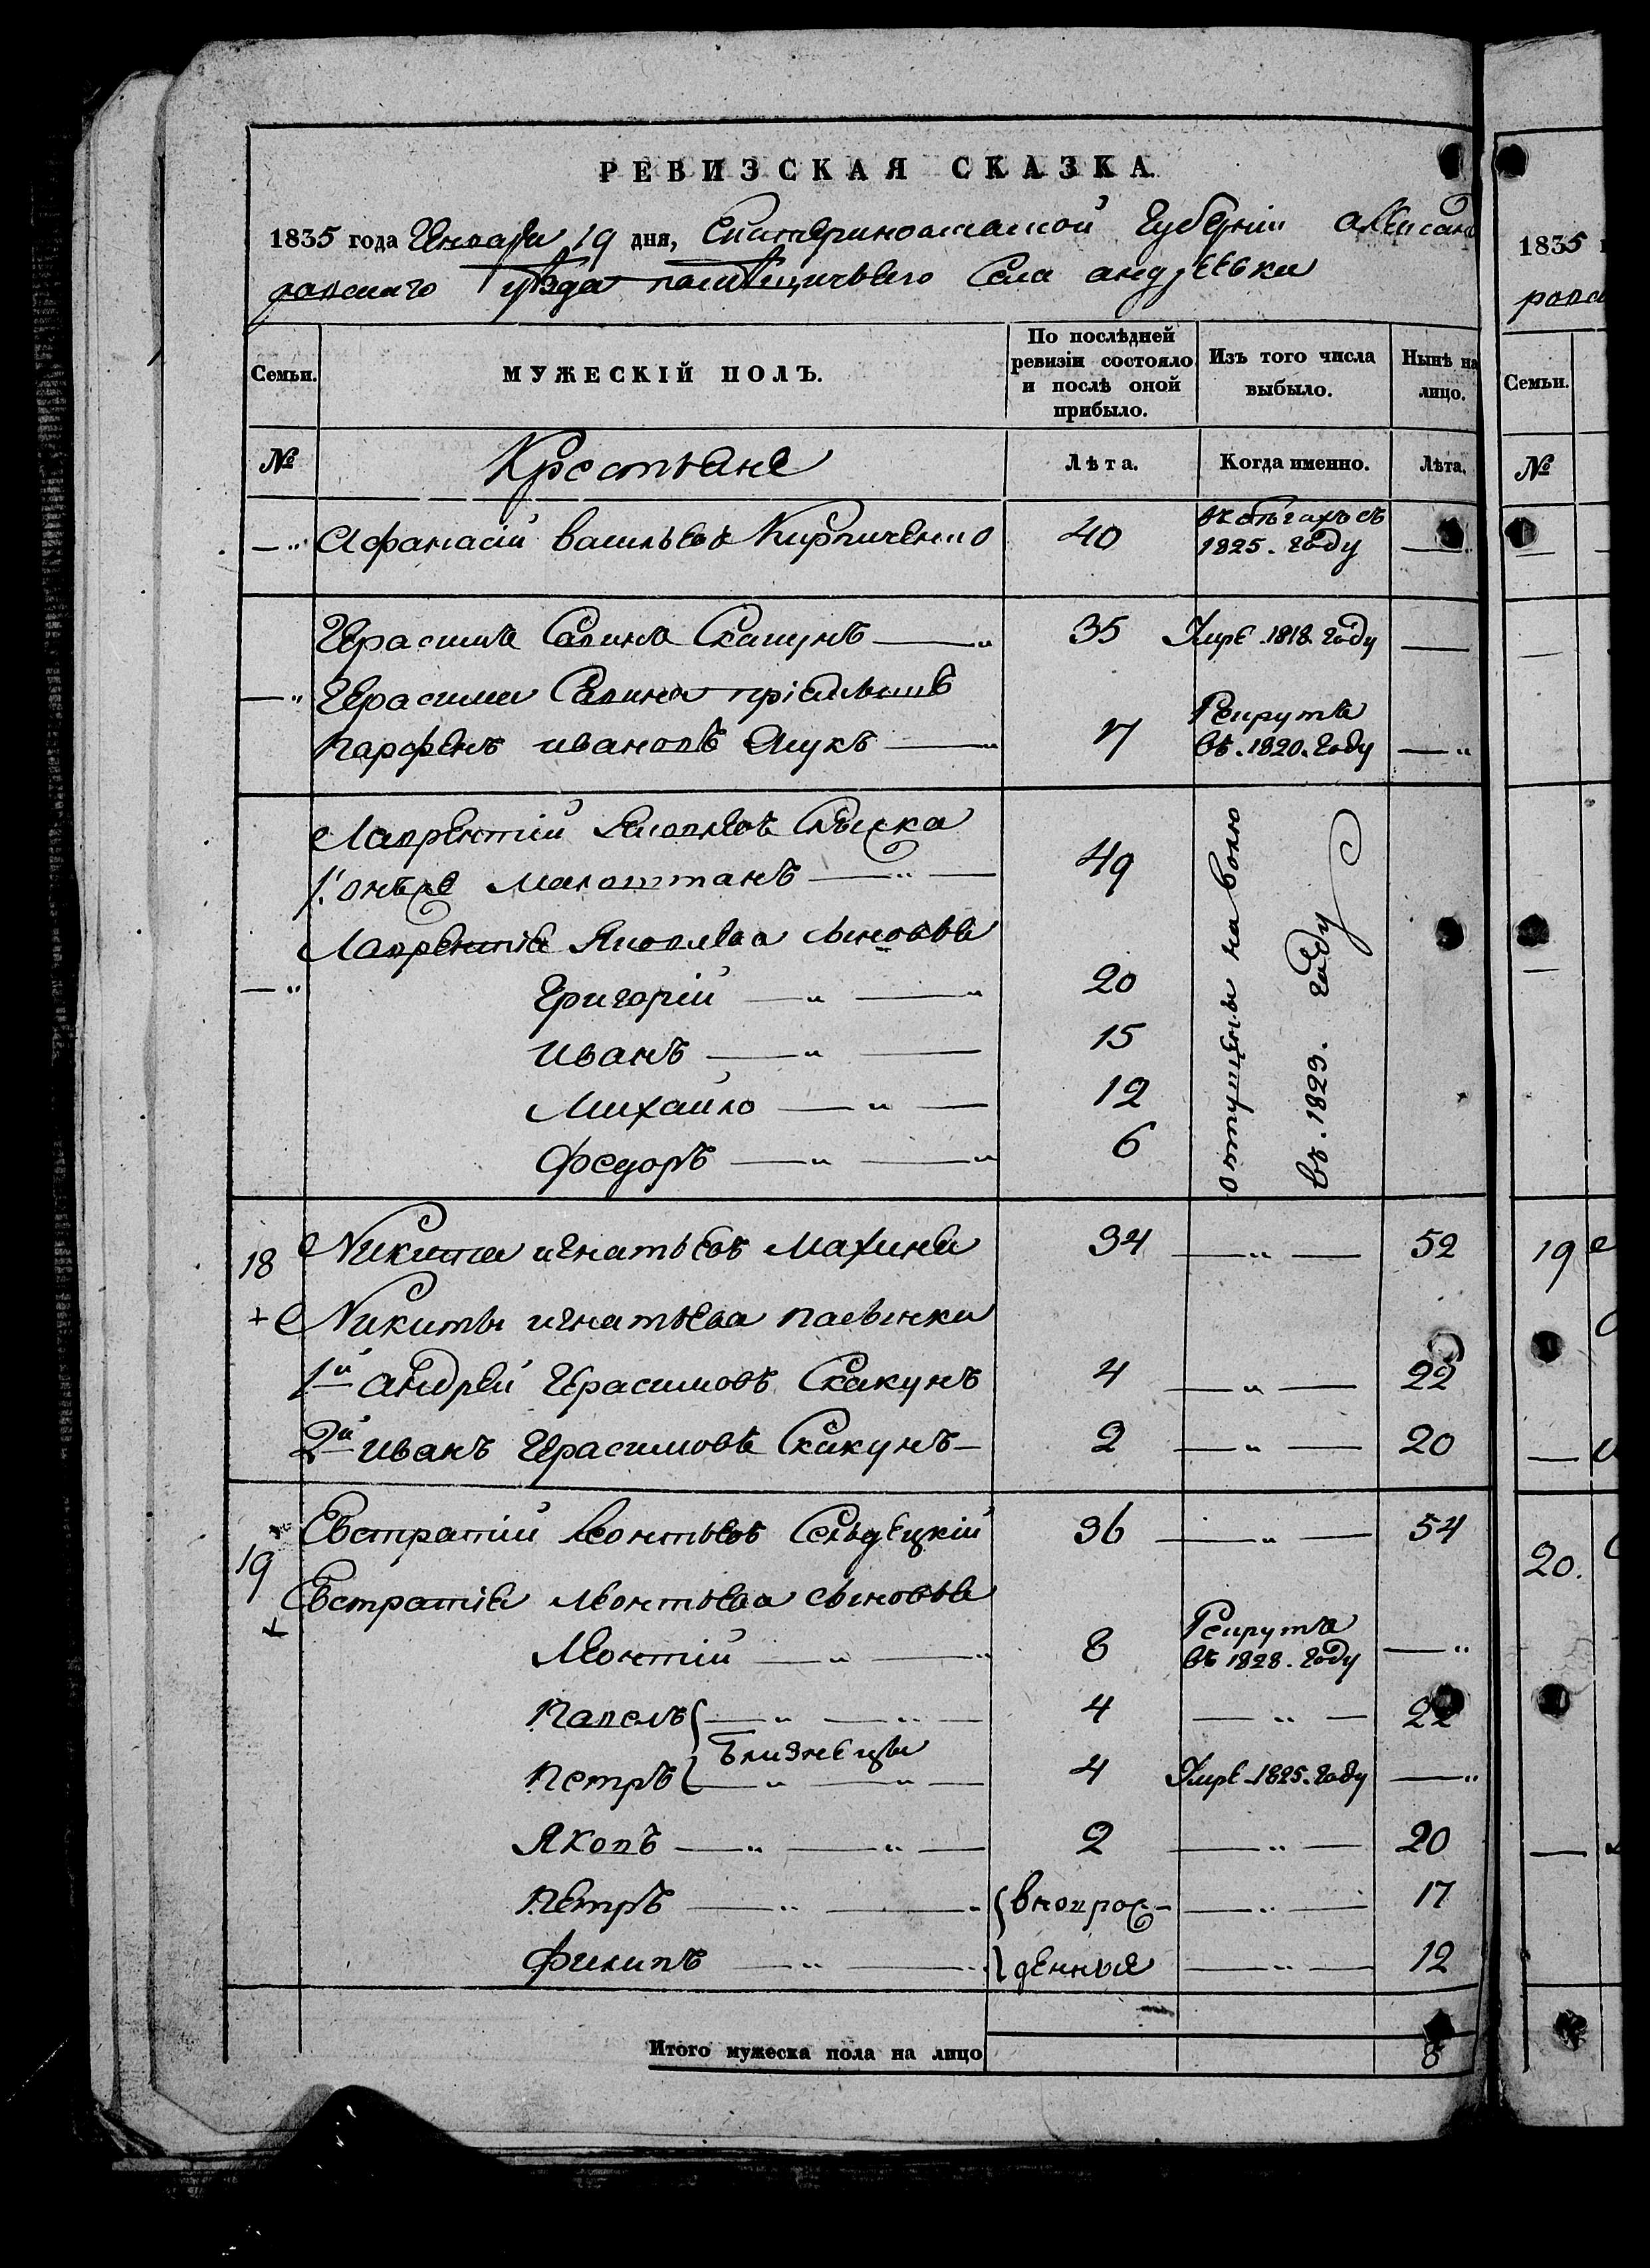 РЕВИЗСКАЯ СКАЗКА.
1835 года Генваря 19 дня, Екатеринославской Губерніи Александ
ровскаго уѣзда помѣщичьяго Села андреевки
Семьи.
МУЖЕСКІЙ ПОЛЪ.
По послѣдней ревизіи состояло и послѣ оной прибыло.
Изъ того числа выбыло.
Нынѣ на лицо.
№ Крестьяне Лѣта. Когда именно. Лѣта.
—„ Афанасій васильевъ Кирпиченко 40 въ бѣгахъ съ 1825. году —„
Герасимъ Савинъ Скакунъ —„ 35 Умре 1818 году —
—„ Герасима Савина пріемышъ
Парфенъ ивановъ Жукъ —„ 7 Рекрутъ въ 1820. году —„
Лаврентій Яковлевъ
онъ же —„— 49
Лаврентія Яковлева сыновья
—„ Григорій —„ —„ 20
иванъ —„ — 15
Михайло —„ — 12
Федоръ —„ —„ 6
отпущены на волю
въ 1823. году
18 Никита игнатьевъ Махиня 34 —„— 52
+ Никиты игнатьева пасынки
1й андрей Герасимовъ Скакунъ 4 —„— 22
2й иванъ Герасимовъ Скакунъ — 2 —„— 20
19 Евстратій Леонтьевъ Сельдецкій 36 —„— 54
+ Евстратія Леонтьева сыновья
Леонтій —„ —„ 8 Рекрутъ въ 1828. году —„
Павелъ { —„ —„ — 4 —„— 22
близнецы
Петръ { —„ —„ — 4 Умре 1825. году —„
Яковъ —„ —„ — 2 —„— 20
Петръ —„ —„ { вновьрож- —„— 17
Филипъ —„ —„ } денные —„— 12
Итого мужеска пола на лицо 8
1835
Семьи.
№
19
20.